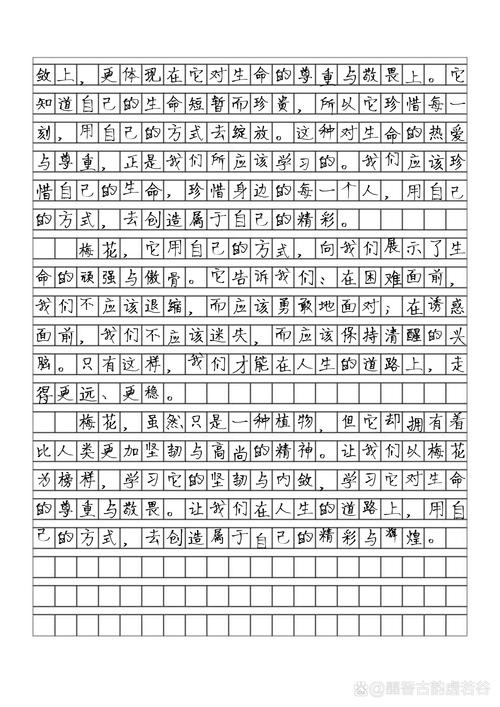 敛上，更体现在它对生命的尊重与敬畏上。它
知道自己的生命短暂而珍贵，所以它珍惜每一
刻，用自己的方式去绽放。这种对生命的热爱
与尊重，正是我们所应该学习的。我们应该珍
惜自己的生命，珍惜身边的每一个人，用自己
的方式，去创造属于自己的精彩。
梅花，它用自己的方式，向我们展示了生
命的顽强与傲骨。它告诉我们：在困难面前，
我们不应该退缩，而应该勇敢地面对；在诱惑
面前，我们不应该迷失，而应该保持清醒的头
脑。只有这样，我们才能在人生的道路上，走
得更远、更稳。
梅花，虽然只是一种植物，但它却拥有着
比人类更加坚韧与高尚的精神。让我们以梅花
为榜样，学习它的坚韧与内敛，学习它对生命
的尊重与敬畏。让我们在人生的道路上，用自
己的方式，去创造属于自己的精彩与辉煌。